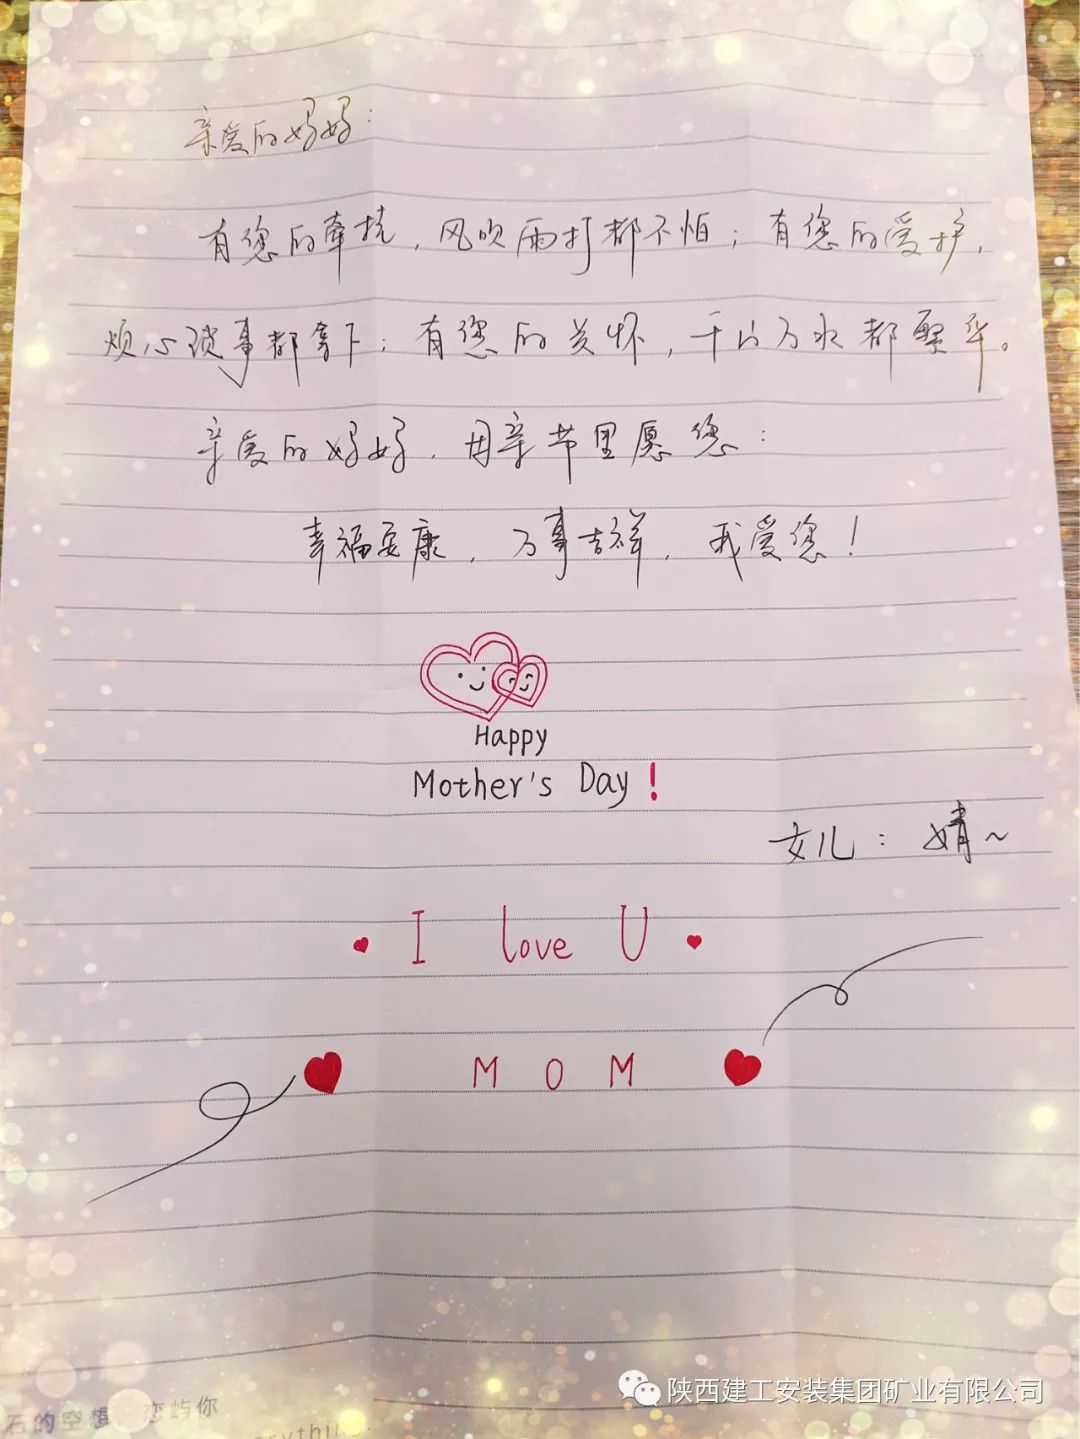 亲爱的妈妈：
有您的牵挂，风吹雨打都不怕；有您的爱护，
烦心琐事都拿下；有您的关怀，千山万水都繁华。
亲爱的妈妈，母亲节里愿您：
幸福安康，万事吉祥，我爱您！
Happy
Mother's Day!
女儿：婧~
I love U
MOM
石的空想 恋屿你
陕西建工安装集团矿业有限公司